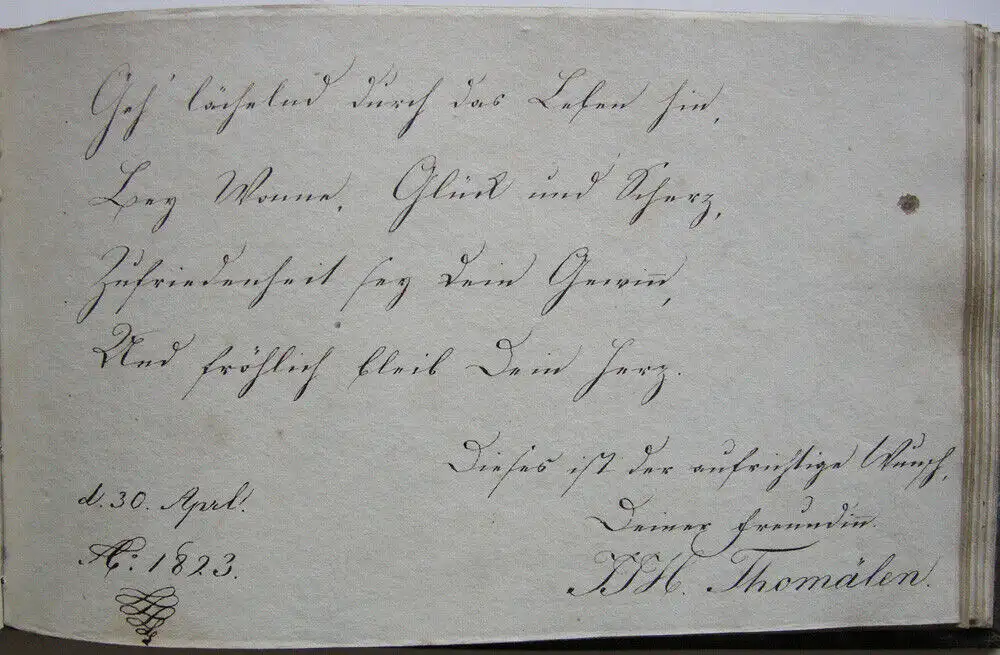 Geh' lächelnd durch das Leben hin,
Bey Wonne, Glück und Scherz,
Zufriedenheit sey dein Gewin̅,
Und fröhlich bleib Dein Herz.
Dieses ist der aufrichtige Wunsch,
d. 30. Aprl.
Deiner Freundin̅.
Ao: 1823.
Thomälen.